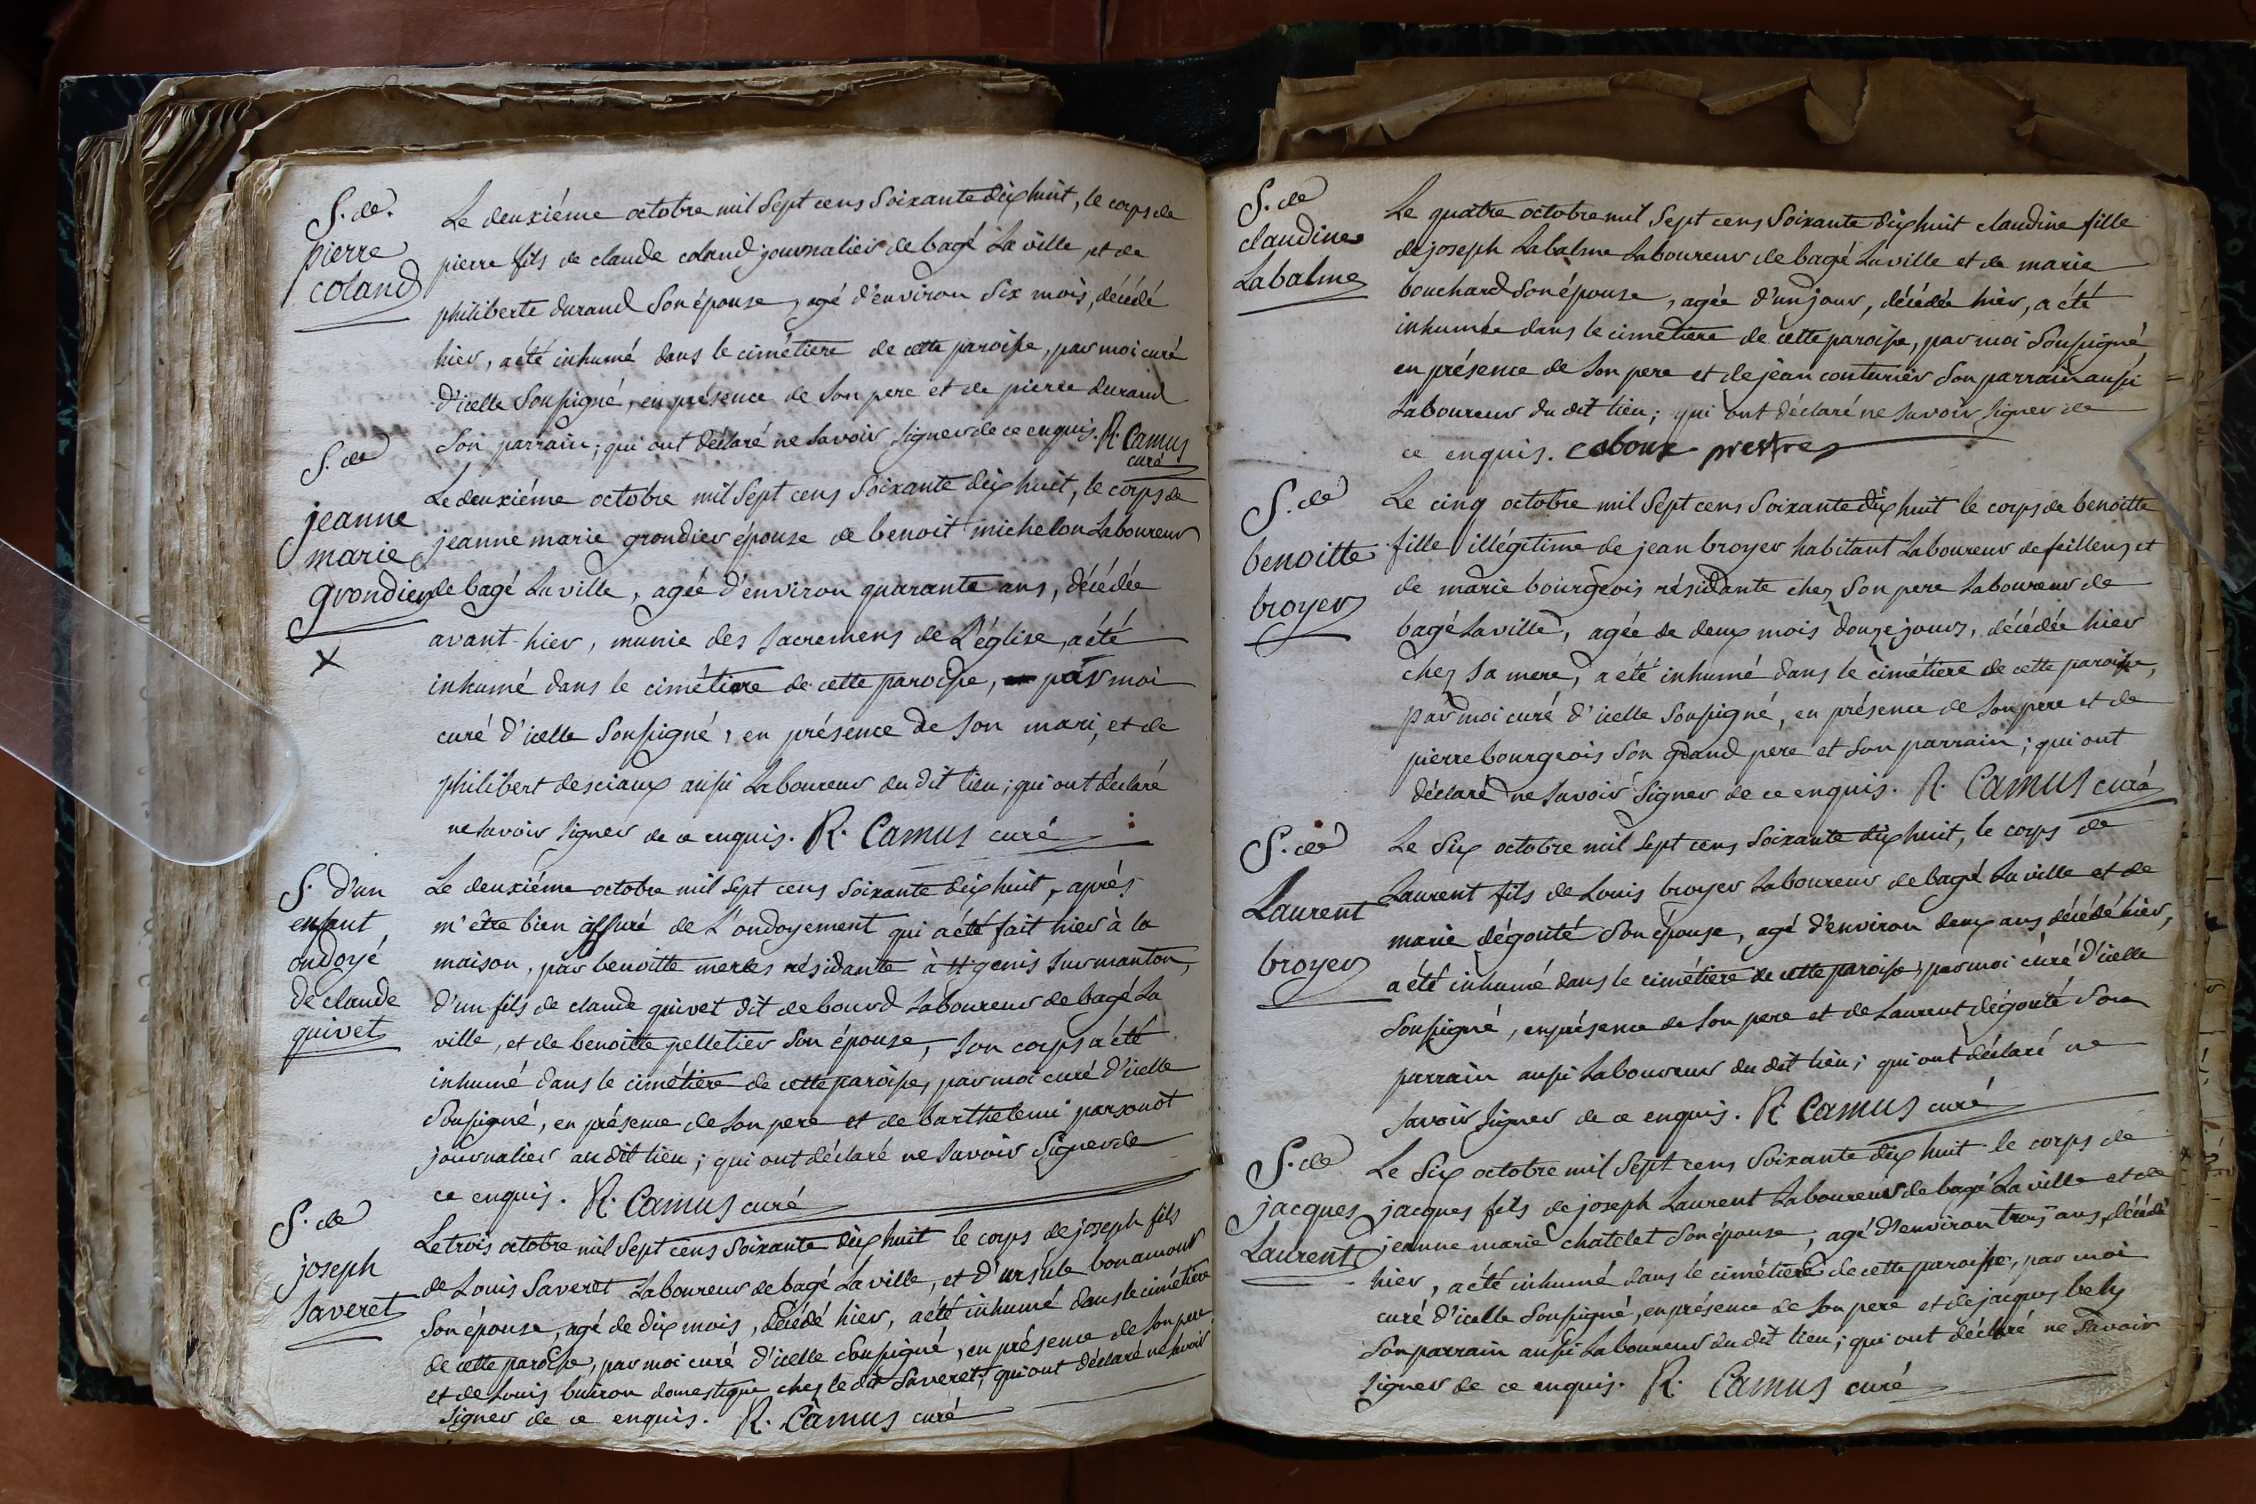 S. de
pierre
coland
Le deuxiéme octobre mil Sept cens Soixante dix huit, le corps de
pierre fils de claude coland journalier de bagé La ville et de
philiberte durand Son épouse, agé d'environ Six mois, décédé
hier, a été inhumé dans le cimétiere de cette paroisse, par moi curé
d'icelle Soussigné, en présence de Son pere et de pierre durand
Son parrain; qui ont déclaré ne Savoir Signer de ce enquis. R. Camus
curé
S. de
jeanne
marie
grondier
Le deuxiéme octobre mil Sept cens Soixante dix huit, le corps de
jeanne marie grondier épouse de benoit michelon Laboureur
de bagé La ville, agée d'environ quarante ans, décédée
avant-hier, munie des Sacremens de L'église, a été
inhumé dans le cimétiere de cette paroisse, par moi
curé d'icelle Soussigné, en présence de Son mari, et de
philibert desciaux aussi Laboureur du dit lieu; qui ont déclaré
ne Savoir Signer de ce enquis. R. Camus curé
S. d'un
enfant
ondoyé
de claude
quivet
Le deuxiéme octobre mil Sept cens Soixante dix huit, aprés
m'être bien assuré de L'ondoyement qui a été fait hier à la
maison, par benoitte merles résidante à St genis Sur manton,
d'un fils de claude quivet dit de bourd Laboureur de bagé La
ville, et de benoitte pelletier Son épouse, Son corps a été
inhumé dans le cimétiere de cette paroisse, par moi curé d'icelle
Soussigné, en présence de Son pere et de barthelemi parsonot
journalier au dit lieu; qui ont déclaré ne Savoir Signer de
ce enquis. R. Camus curé
S. de
joseph
Saveret
Le trois octobre mil Sept cens Soixante dix huit le corps de joseph fils
de Louis Saveret Laboureur de bagé La ville, et d'ursule bonamour
Son épouse, agé de dix mois, décédé hier, a été inhumé dans le cimétiere
de cette paroisse, par moi curé d'icelle Soussigné, en présence de Son pere
et de Louis buiron domestique chez le dit Saveret; qui ont déclaré ne Savoir
Signer de ce enquis. R. Camus curé
S. de
claudine
Labalme
Le quatre octobre mil Sept cens Soixante dix huit claudine fille
de joseph Labalme Laboureur de bagé La ville et de marie
bouchard Son épouse, agée d'un jour, décédée hier, a été
inhumée dans le cimétiere de cette paroisse, par moi Soussigné
en présence de Son pere et de jean couturier Son parrain aussi
Laboureur du dit lieu; qui ont déclaré ne Savoir Signer de
ce enquis. caboux prestre
S. de
benoitte
broyer
Le cinq octobre mil Sept cens Soixante dix huit le corps de benoitte
fille illégitime de jean broyer habitant Laboureur de feillens, et
de marie bourgeois résidante chez Son pere Laboureur de
bagé La ville, agée de deux mois douze jours, décédée hier
chez Sa mere, a été inhumé dans le cimétiere de cette paroisse,
par moi curé d'icelle Soussigné, en présence de Son pere et de
pierre bourgeois Son grand pere et Son parrain; qui ont
déclaré ne Savoir Signer de ce enquis. R. Camus curé
S. de
Laurent
broyer
Le Six octobre mil Sept cens Soixante dix huit, le corps de
Laurent fils de Louis broyer Laboureur de bagé La ville et de
marie dégouté Son épouse, agé d'environ deux ans décédé hier,
a été inhumé dans le cimétiere de cette paroisse, par moi curé d'icelle
Soussigné, en présence de Son pere et de Laurent dégouté Son
parrain aussi Laboureur du dit lieu; qui ont déclaré ne
Savoir Signer de ce enquis. R. Camus curé
S. de
jacques
Laurent
Le Six octobre mil Sept cens Soixante dix huit le corps de
jacques fils de joseph Laurent Laboureur de bagé La ville et de
jeanne marie chatelet Son épouse, agé d'environ trois ans, décédé
hier, a été inhumé dans le cimétiere de cette paroisse, par moi
curé d'icelle Soussigné, en présence de Son pere et de jacques bely
Son parrain aussi Laboureur du dit lieu; qui ont déclaré ne Savoir
Signer de ce enquis. R. Camus curé